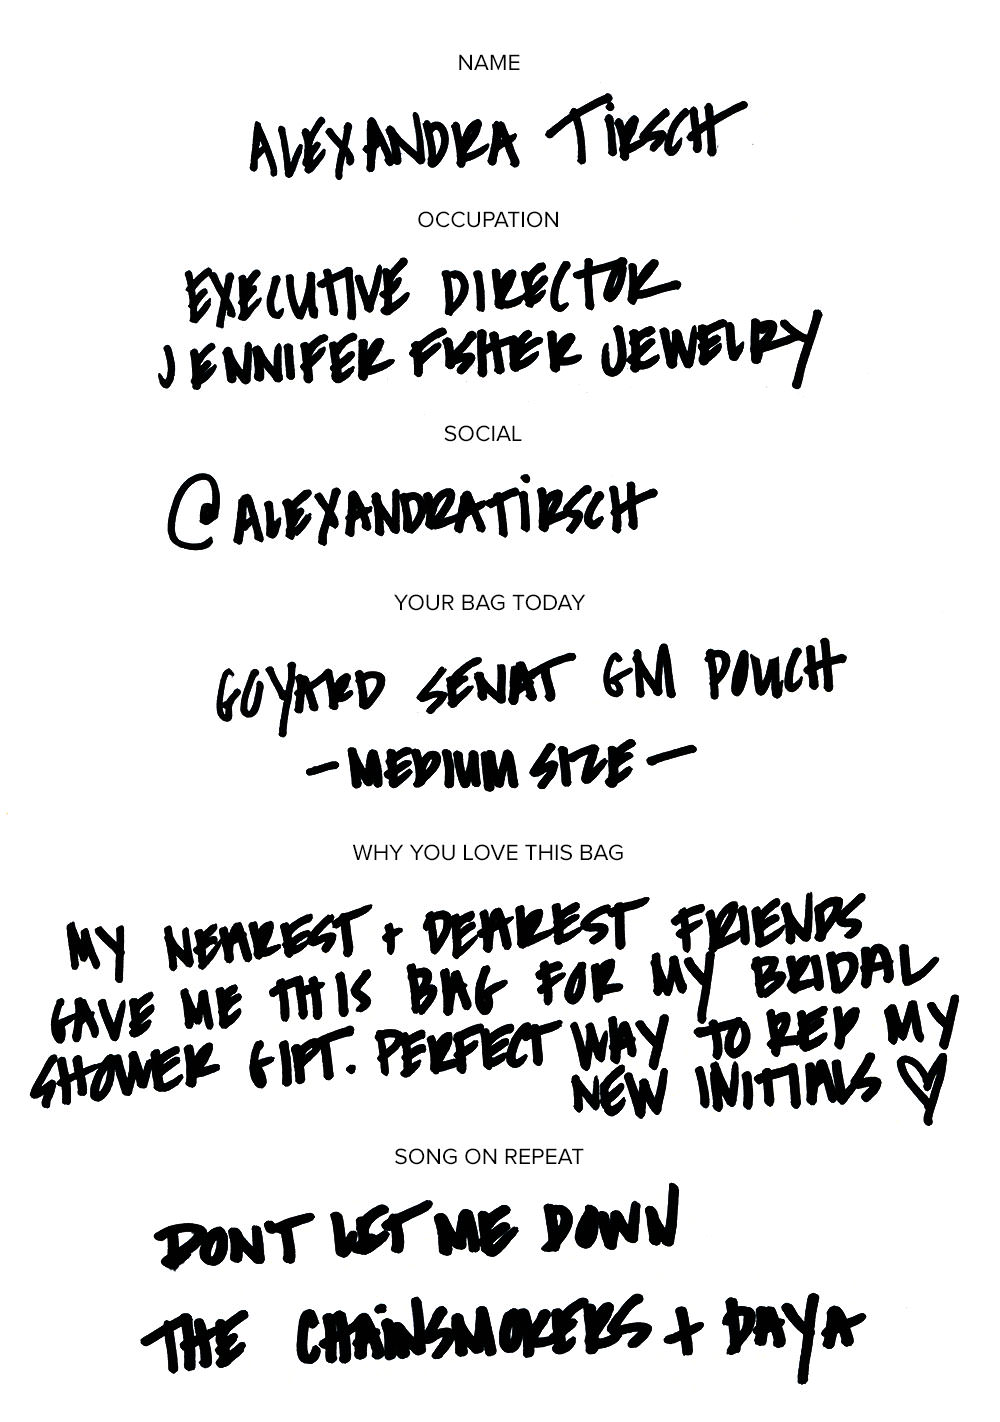 NAME
ALEXANDRA TiRSCH
OCCUPATION
EXECUTIVE DIRECTOR
JENNIFER FISHER JEWELRY
SOCIAL
@ALEXANDRATiRSCH
YOUR BAG TODAY
GOYARD SENAT GM POUCH
- MEDIUM SIZE -
WHY YOU LOVE THIS BAG
MY NEAREST + DEAREST FRIENDS
GAVE ME THIS BAG FOR MY BRIDAL
SHOWER GIFT. PERFECT WAY TO REP MY
NEW INITIALS ♡
SONG ON REPEAT
DONT LET ME DOWN
THE CHAiNSMOKERS + DAYA